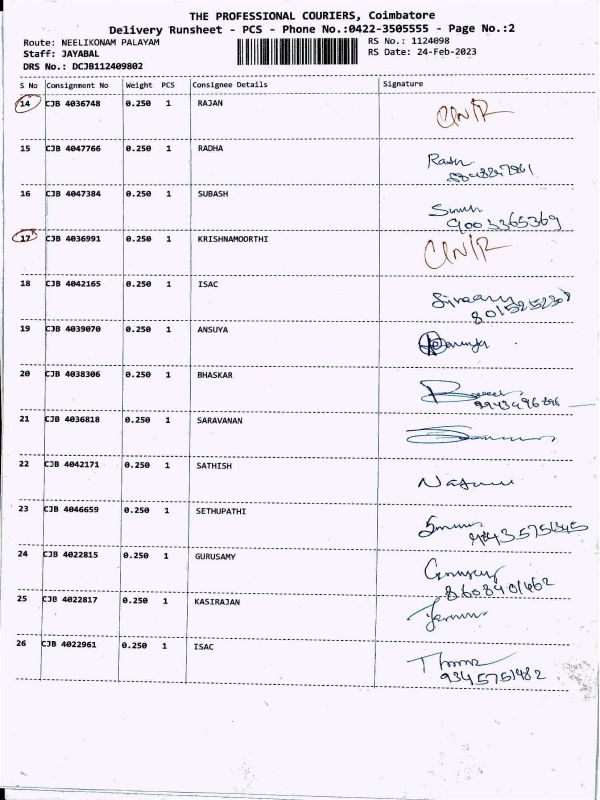 THE PROFESSIONAL COURIERS, Coimbatore
Delivery Runsheet - PCS - Phone No.:0422-3505555 - Page No.:2
Route: NEELIKONAM PALAYAM RS No.: 1124098
Staff: JAYABAL RS Date: 24-Feb-2023
DRS No.: DCJB112409802
S No Consignment No Weight PCS Consignee Details Signature
14 CJB 4036748 0.250 1 RAJAN
15 CJB 4047766 0.250 1 RADHA
16 CJB 4047384 0.250 1 SUBASH
9003365369
17 CJB 4036991 0.250 1 KRISHNAMOORTHI
18 CJB 4042165 0.250 1 ISAC
8015252308
19 CJB 4039070 0.250 1 ANSUYA
20 CJB 4038306 0.250 1 BHASKAR
21 CJB 4036818 0.250 1 SARAVANAN
22 CJB 4042171 0.250 1 SATHISH
23 CJB 4046659 0.250 1 SETHUPATHI
24 CJB 4022815 0.250 1 GURUSAMY
8608401462
25 CJB 4022817 0.250 1 KASIRAJAN
26 CJB 4022961 0.250 1 ISAC
9345751482